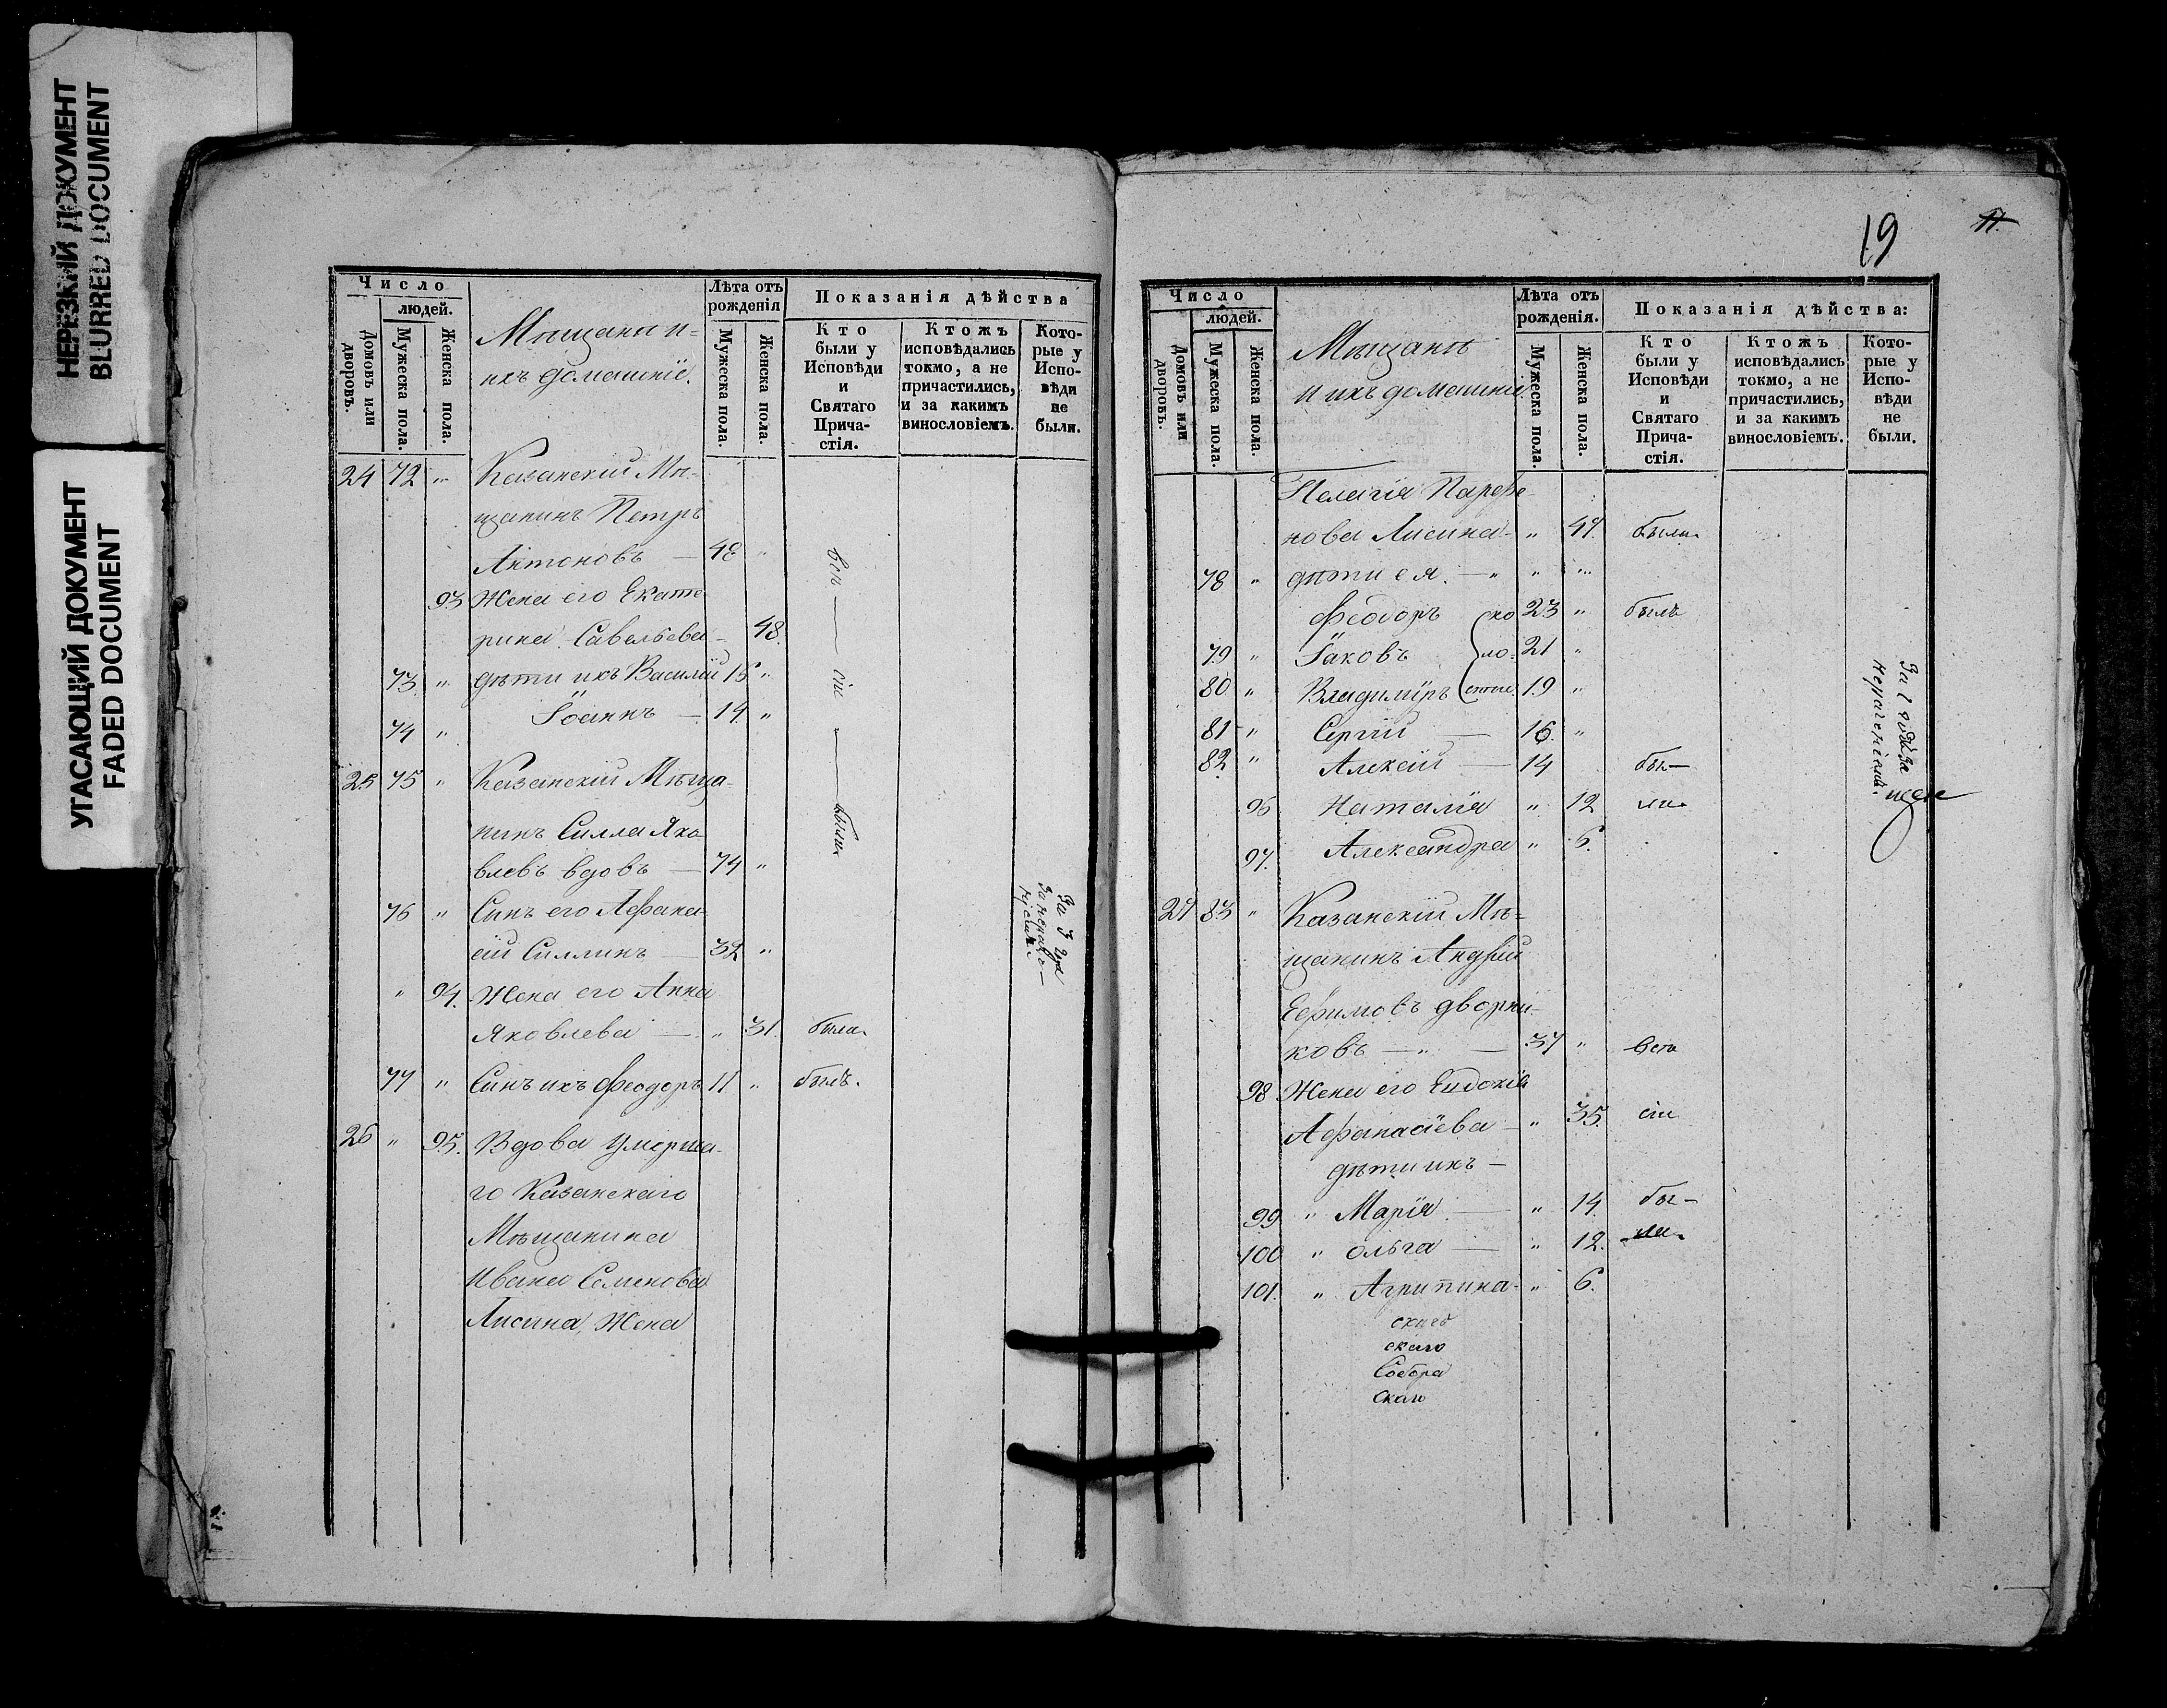 НЕРЕЗКИЙ ДОКУМЕНТ
BLURRED DOCUMENT
УГАСАЮЩИЙ ДОКУМЕНТ
FADED DOCUMENT
Число
людей.
Домовъ или дворовъ.
Мужеска пола.
Женска пола.
Мѣщане и
ихъ домашніе.
Лѣта отъ
рожденія
Мужеска пола.
Женска пола.
Показанія дѣйства
Кто
были у
Исповѣди
и
Святаго
Прича-
стія.
Ктожъ
исповѣдались
токмо, а не
причастились,
и за какимъ
винословіемъ.
Кото-
рые у
Испо-
вѣди
не
были.
24 72 " Казанскій Мѣ-
щанинъ Петръ
Антоновъ — 48 "
93 Жена его Екате
рина Савельева — 48.
73. " дѣти ихъ Василій 15 "
74 " Іоаннъ — 14. "
всѣ — сіи — были
25 75 " Казанскій Мѣща-
нинъ Силла Яко
влевъ вдовъ — 74 "
76 " Сынъ его Афана-
сій Силлинъ — 32 "
" 94. Жена его Анна
Яковлева — " 31. была.
77 " Сынъ ихъ Феодоръ 11 " былъ.
26 " 95. Вдова умерша-
го Казанскаго
Мѣщанина
Ивана Семенова
Лисина, Жена
19
Число
людей.
Домовъ или дворовъ.
Мужеска пола.
Женска пола.
Мѣщане
и ихъ домашніе.
Лѣта отъ
рожденія.
Мужеска пола.
Женска пола.
Показанія дѣйства:
Кто
были у
Исповѣди
и
Святаго
Прича-
стія.
Ктожъ
исповѣдались
токмо, а не
причастились,
и за какимъ
винословіемъ.
Кото-
рые у
Испо-
вѣди
не
были.
Пелагія Парфе-
нова Лисина - " 47. была.
78 " дѣти ея. — " " "
Феодоръ хо 23 " былъ
79 " Іаковъ ло- 21 "
80 " Владиміръ 19 "
81 - " Сергій — 16. "
82. " Алексій — 14 бы —
96 Наталія " 12 ли.
97. Александра " 6.
27 83 " Казанскій Мѣ-
щанинъ Андрей
Ефимовъ дворни-
ковъ — " — 37 "
98 Жена его Евдокія
Афанасіева — " 35. сіи
дѣти ихъ —
99 " Марія — " 14. бы —
100 " Ольга — " 12. ли.
101. " Агрипина - " 6.
скаго
Собора